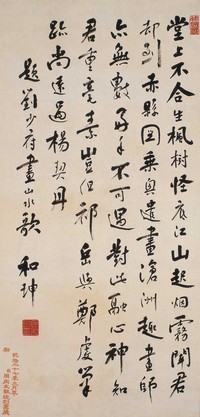 堂上不合生楓樹怪底江山起烟霧聞君
却赤縣圖乘興遣畫滄洲趣畫師
亦無數好手不可遇對此融心神知
君重毫素豈但祁岳與鄭虔筆
跡尚遠過楊契丹
題劉少府畫山水歌 和珅